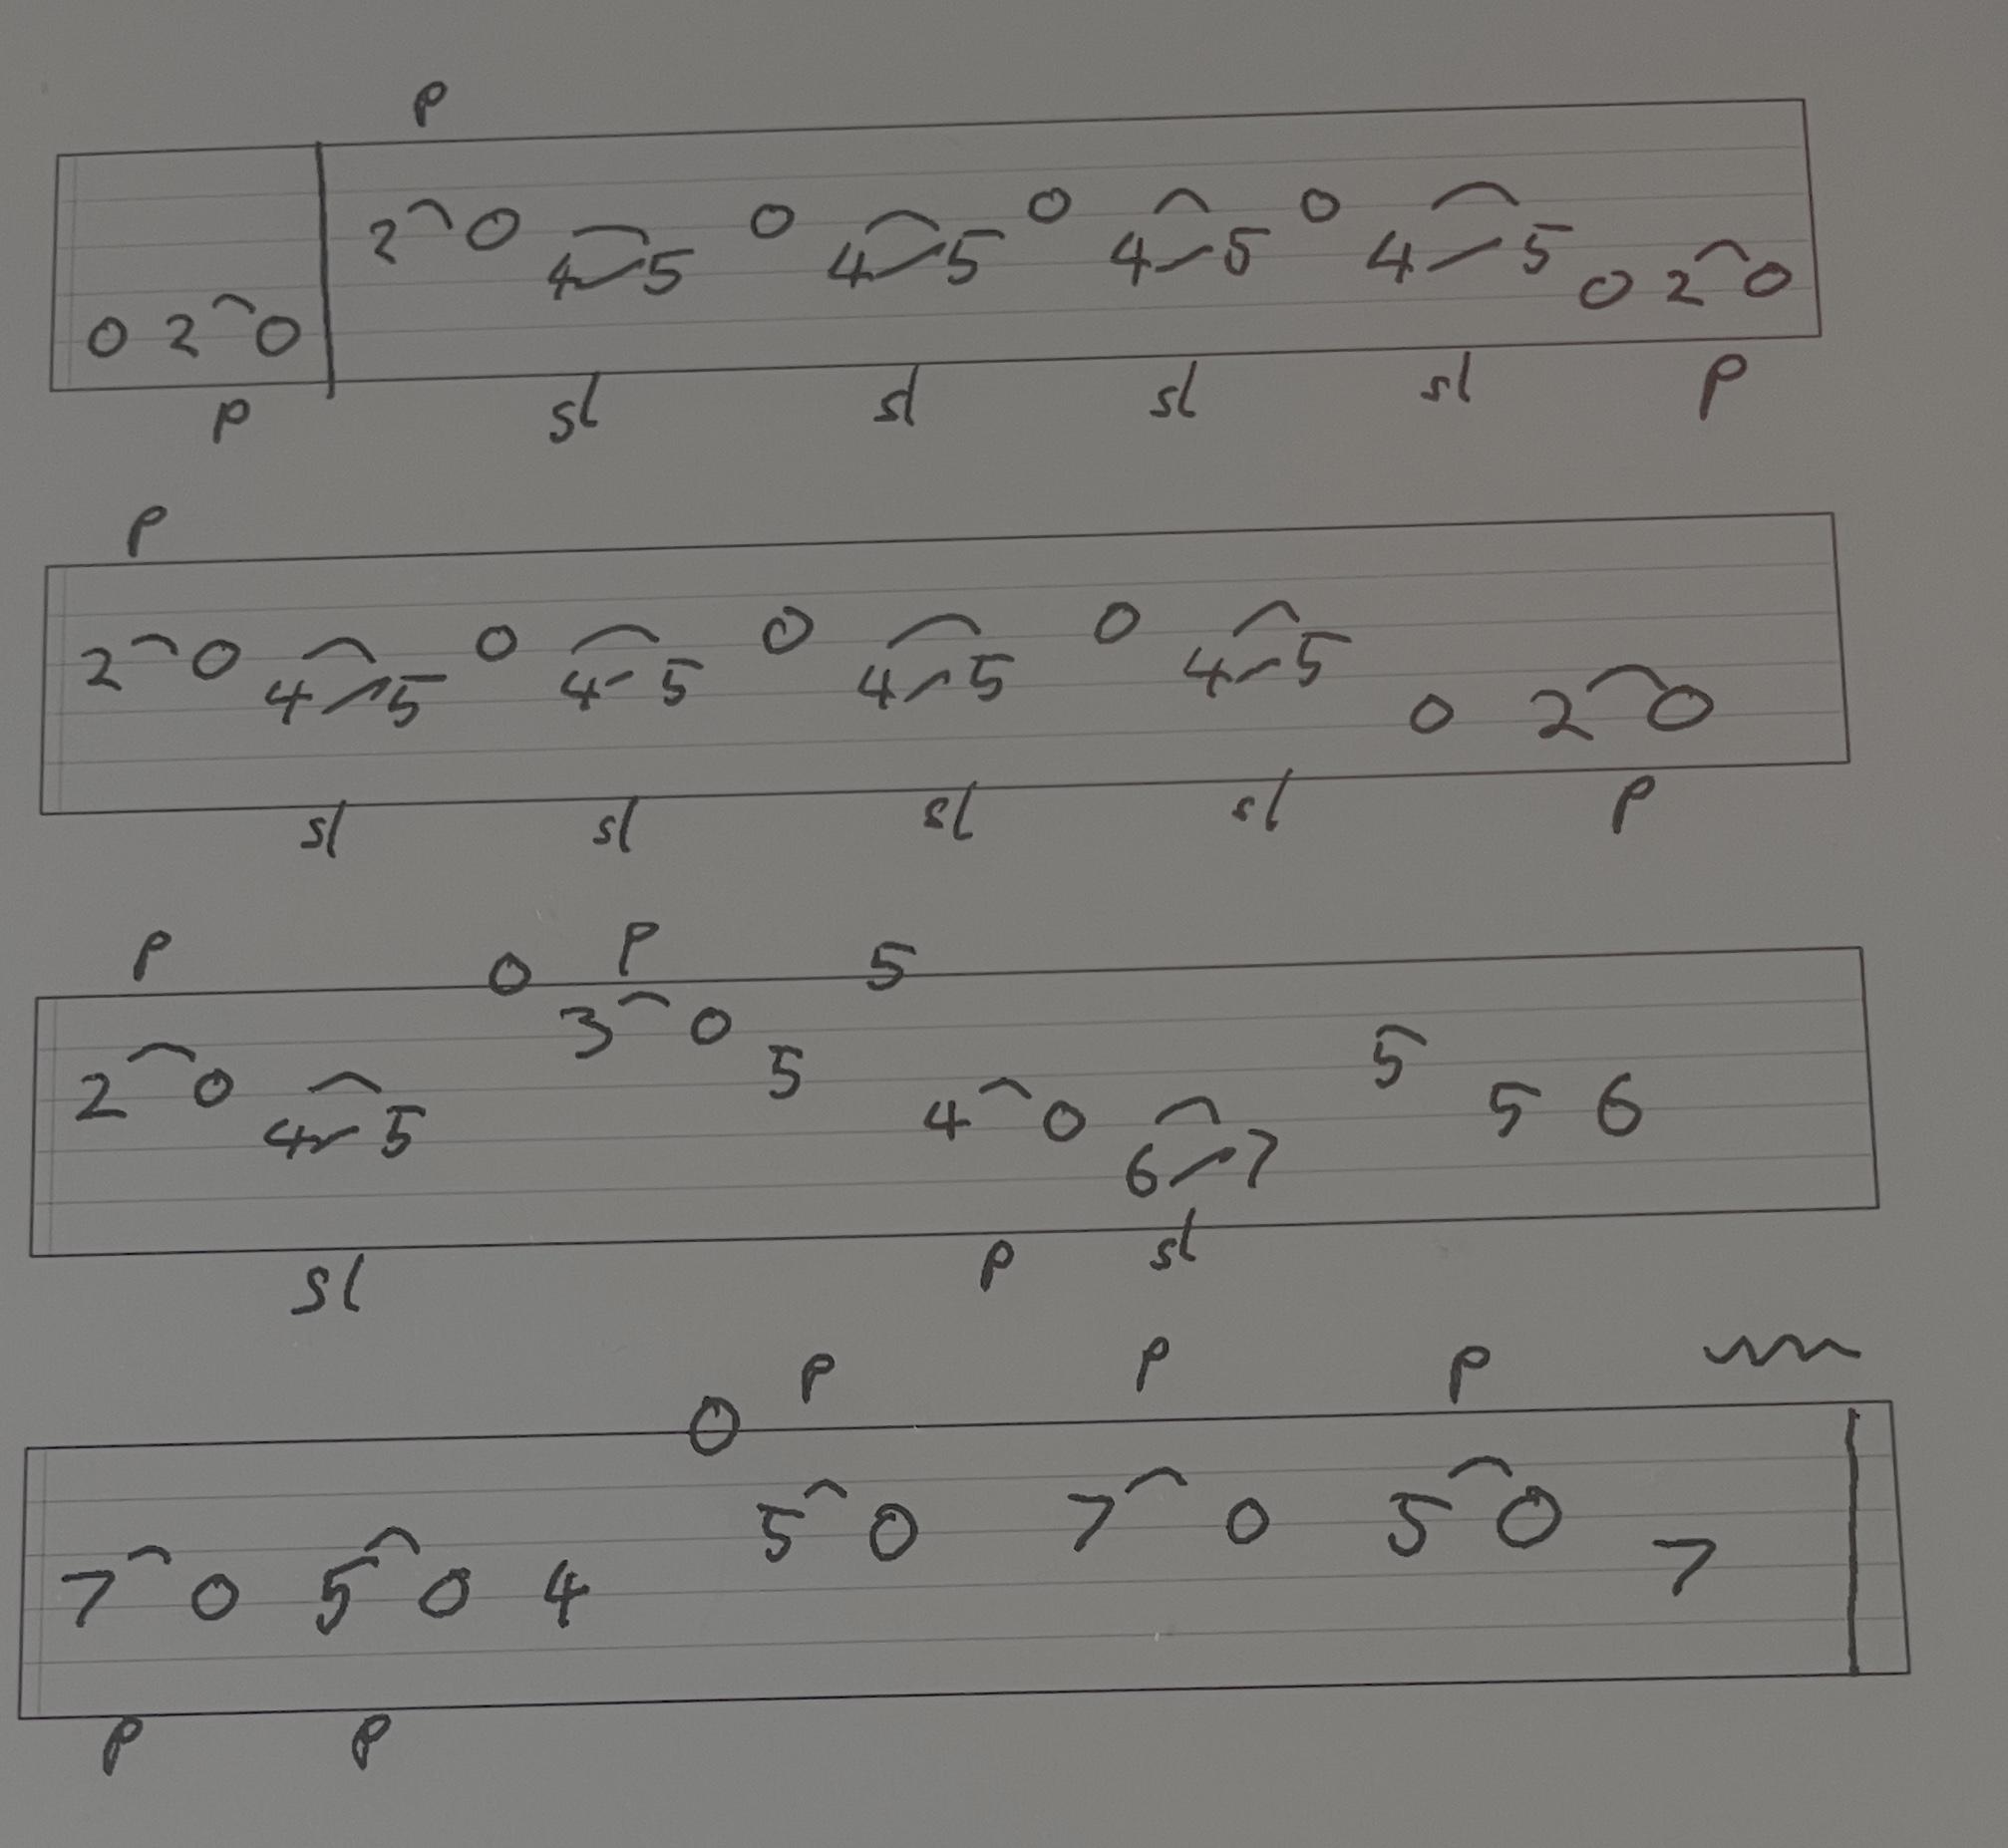 P
0 2 0 2 0 4 5 0 4 5 0 4 5 0 4 5 0 2 0
P sl sl sl sl P
P
2 0 4 5 0 4 5 0 4 5 0 4 5 0 2 0
sl sl sl sl P
P P
2 0 4 5 0 3 0 5 5 4 0 6 7 5 5 6
sl P sl
P P P
7 0 5 0 4 0 5 0 7 0 5 0 7
P P